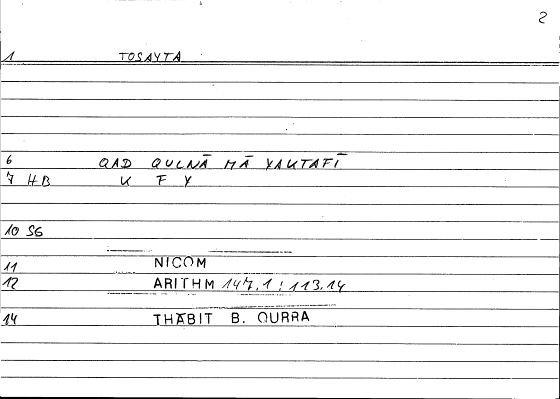 2
1 TOSAYTA
6 QAD QULNĀ MĀ YAKTAFĪ
7 HB K F Y
10 SG
11 NICOM
12 ARITHM 147,1 ; 113,14
14 THĀBIT B. QURRA